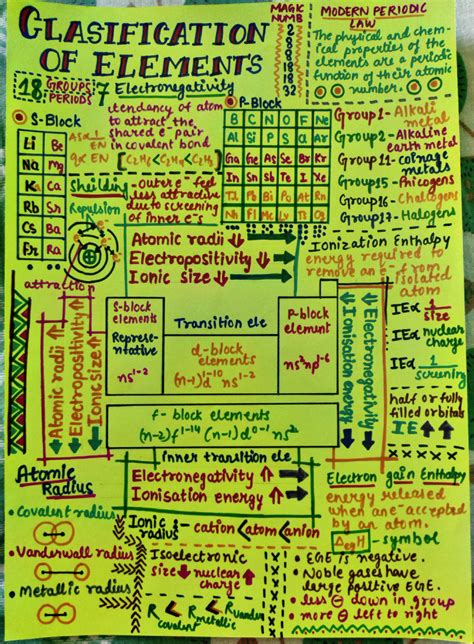 CLASIFICATION
OF ELEMENTS
MAGIC
NUMB
2
8
8
18
18
32
MODERN PERIODIC
LAW
The physical and chem-
ical properties of the
elements are a periodic
function of their atomic
number.
18 GROUPS 7
PERIODS
Electronegativity
tendancy of atom
to attract the
shared e- pair
in covalent bond
[C2H6<C2H4<C2H2]
S-Block
Li Be
Na Mg
K Ca
Rb Sr
Cs Ba
Fr Ra
P-Block
B C N O F Ne
Al Si P S Cl Ar
Ga Ge As Se Br Kr
In Sn Sb Te I Xe
TJ Pb Bi Po At Rn
Nh Fl Mc Lv Ts
Group1- Alkali
metal
Group2- Alkaline
earth metal
Group11- coinage
metals
Group15- Phicogens
Group16- Chalogens
Group17- Halogens
Sheilding - outer e- feel
less attractive
due to screening
of inner e-s
Repulsion
attraction
Atomic radii ↓
Electropositivity ↓
Ionic size ↓
Ionization Enthalpy
energy required to
remove an e- from
isolated
atom
IE∝ 1/size
IE∝ nuclear
charge
IE∝ 1/screening
half or fully
filled orbitals
IE ↑
Atomic radii ↑
Electropositivity ↑
Ionic size ↑
S-block
elements
Represe-
ntative
ns1-2
Transition ele
d-block
elements
(n-1)d1-10 ns1-2
P-block
element
ns2np1-6
Ionisation energy ↓
Electronegativity ↓
f- block elements
(n-2)f1-14 (n-1)d0-1 ns2
inner transition ele
Electronegativity ↑
Ionisation energy ↑
Atomic
Radius
• Covalent radius
• Vanderwall radius
• Metallic radius
Ionic :- cation<atom<anion
radius
Isoelectronic
size ↓ nuclear ↑
charge
R covalent < R metallic < R vanderw
Electron gain Enthalpy
energy released
when an e- accepted
by an atom.
ΔegH - symbol
• EGE is negative.
• Noble gases have
large positive EGE.
• less ⊖ down in group
• more ⊖ left to right